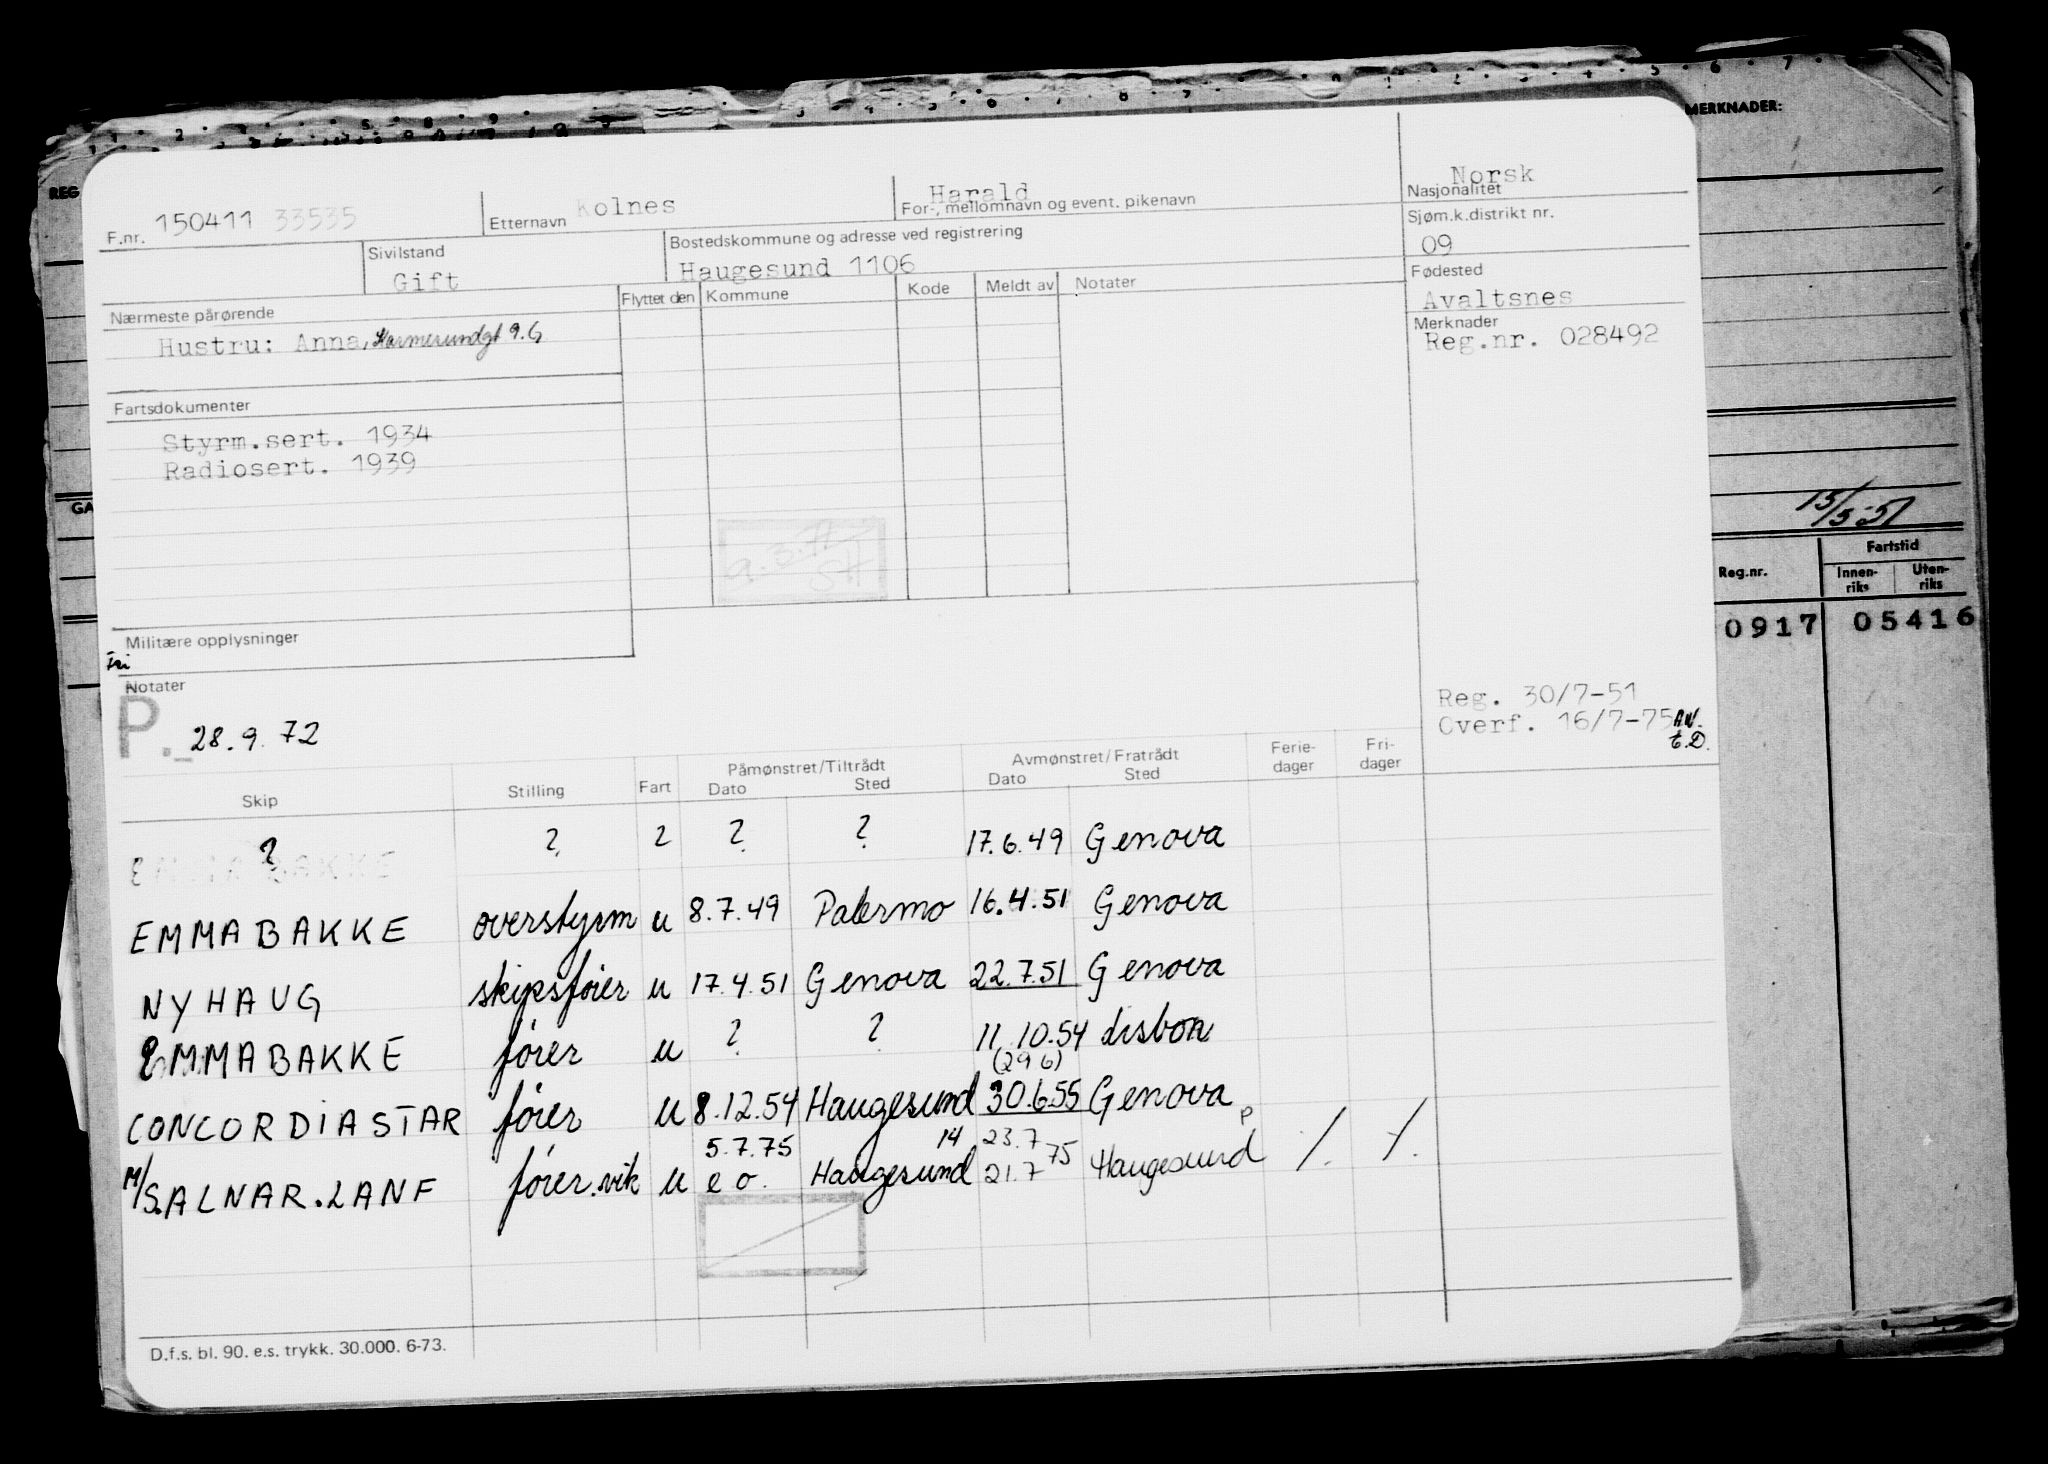 MERKNADER:
REG
F.nr. 150411 33535
Etternavn Kolnes
Harald
For-, mellomnavn og event. pikenavn
Norsk
Nasjonalitet
Sjøm.k.distrikt nr.
09
Sivilstand
Gift
Bostedskommune og adresse ved registrering
Haugesund 1106
Fødested
Avaltsnes
Nærmeste pårørende
Hustru: Anna, Karmsundgt 9. G
Flyttet den Kommune Kode Meldt av Notater
Merknader
Reg.nr. 028492
Fartsdokumenter
Styrm.sert. 1934
Radiosert. 1939
9.3.71
SH
15/5-51
GA
Reg.nr. Fartstid
Innen-riks Uten-riks
0917 05416
Militære opplysninger
Fri
Notater
P. 28.9.72
Reg. 30/7-51
Overf. 16/7-75 AW.
E.D.
Skip Stilling Fart Påmønstret/Tiltrådt Dato Sted Avmønstret/Fratrådt Dato Sted Ferie-dager Fri-dager
EMMA BAKKE ? ? ? ? ? 17.6.49 Genova
EMMA BAKKE overstyrm u 8.7.49 Palermo 16.4.51 Genova
NYHAUG skipsfører u 17.4.51 Genova 22.7.51 Genova
EMMA BAKKE fører u ? ? 11.10.54 Lisbon
(29 6)
CONCORDIA STAR fører u 8.12.54 Haugesund 30.6.55 Genova
5.7.75 14 23.7 P
M/S. ALNAR. LANF fører.vik u e o. Haugesund 21.7 75 Haugesund /. /.
D.f.s. bl. 90. e.s. trykk. 30.000. 6-73.